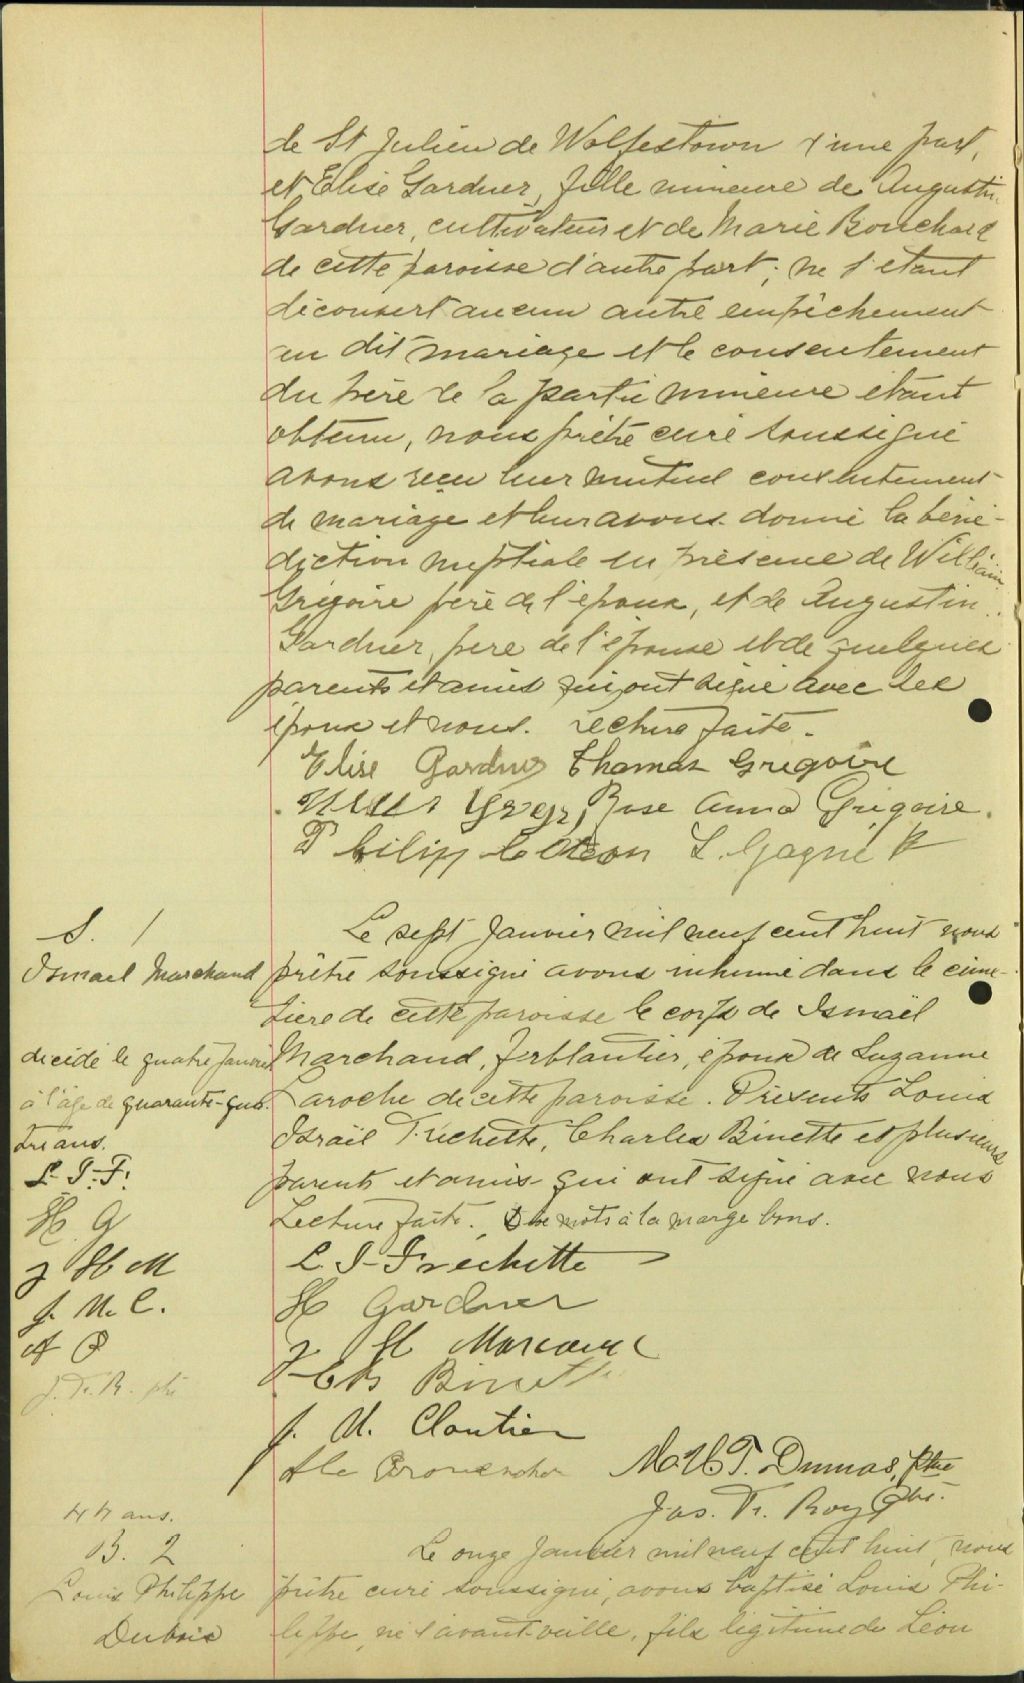 de St Julien de Wolfestown d'une part,
et Elise Gardner, fille mineure de Augustin
Gardner, cultivateur et de Marie Bouchard
de cette paroisse d'autre part; ne s'étant
découvert aucun autre empêchement
au dit mariage et le consentement
du père de la partie mineure étant
obtenu, nous prêtre curé soussigné
avons reçu leur mutuel consentement
de mariage et leur avons donné la béné-
diction nuptiale en présence de William
Grégoire père de l'époux, et de Augustin
Gardner, père de l'épouse et de quelques
parents et amis qui ont signé avec les
époux et nous. Lecture faite.
Elise Gardner Thomas Gregoire
Rose Anna Grégoire.
L. Gagné Ptr
S. 1
Ismael Marchand
décédé le quatre janvier
à l'âge de quarante-qua-
tre ans.
L-I-F.
H. G
J H M
J. N. C.
A P
J. Tr. R. ptr
Le sept Janvier mil neuf cent huit nous
prêtre soussigné avons inhumé dans le cime-
tière de cette paroisse le corps de Ismaël
Marchand, ferblantier, époux de Suzanne
Laroche de cette paroisse. Présents Louis
Israël Fréchette, Charles Binette et plusieurs
parents et amis qui ont signé avec nous
Lecture faite. mots à la marge bons.
L. I-Frechette
H Gardner
J H Marcoux
Chs Binette
J. N. Cloutier
Provencher M. H T. Dumas, Ptre
Jos. Tr. Roy Ptr.
44 ans.
B. 2
Louis Philippe
Dubois
Le onze Janvier mil neuf cent huit, nous
prêtre curé soussigné, avons baptisé Louis Phi-
lippe, né l'avant-veille, fils légitime de Léon